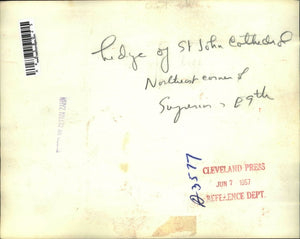 hedge of St John Cathedral
Northeast corner of
Superior & E9th
CLEVELAND PRESS
JUN 7 1957
REFERENCE DEPT.